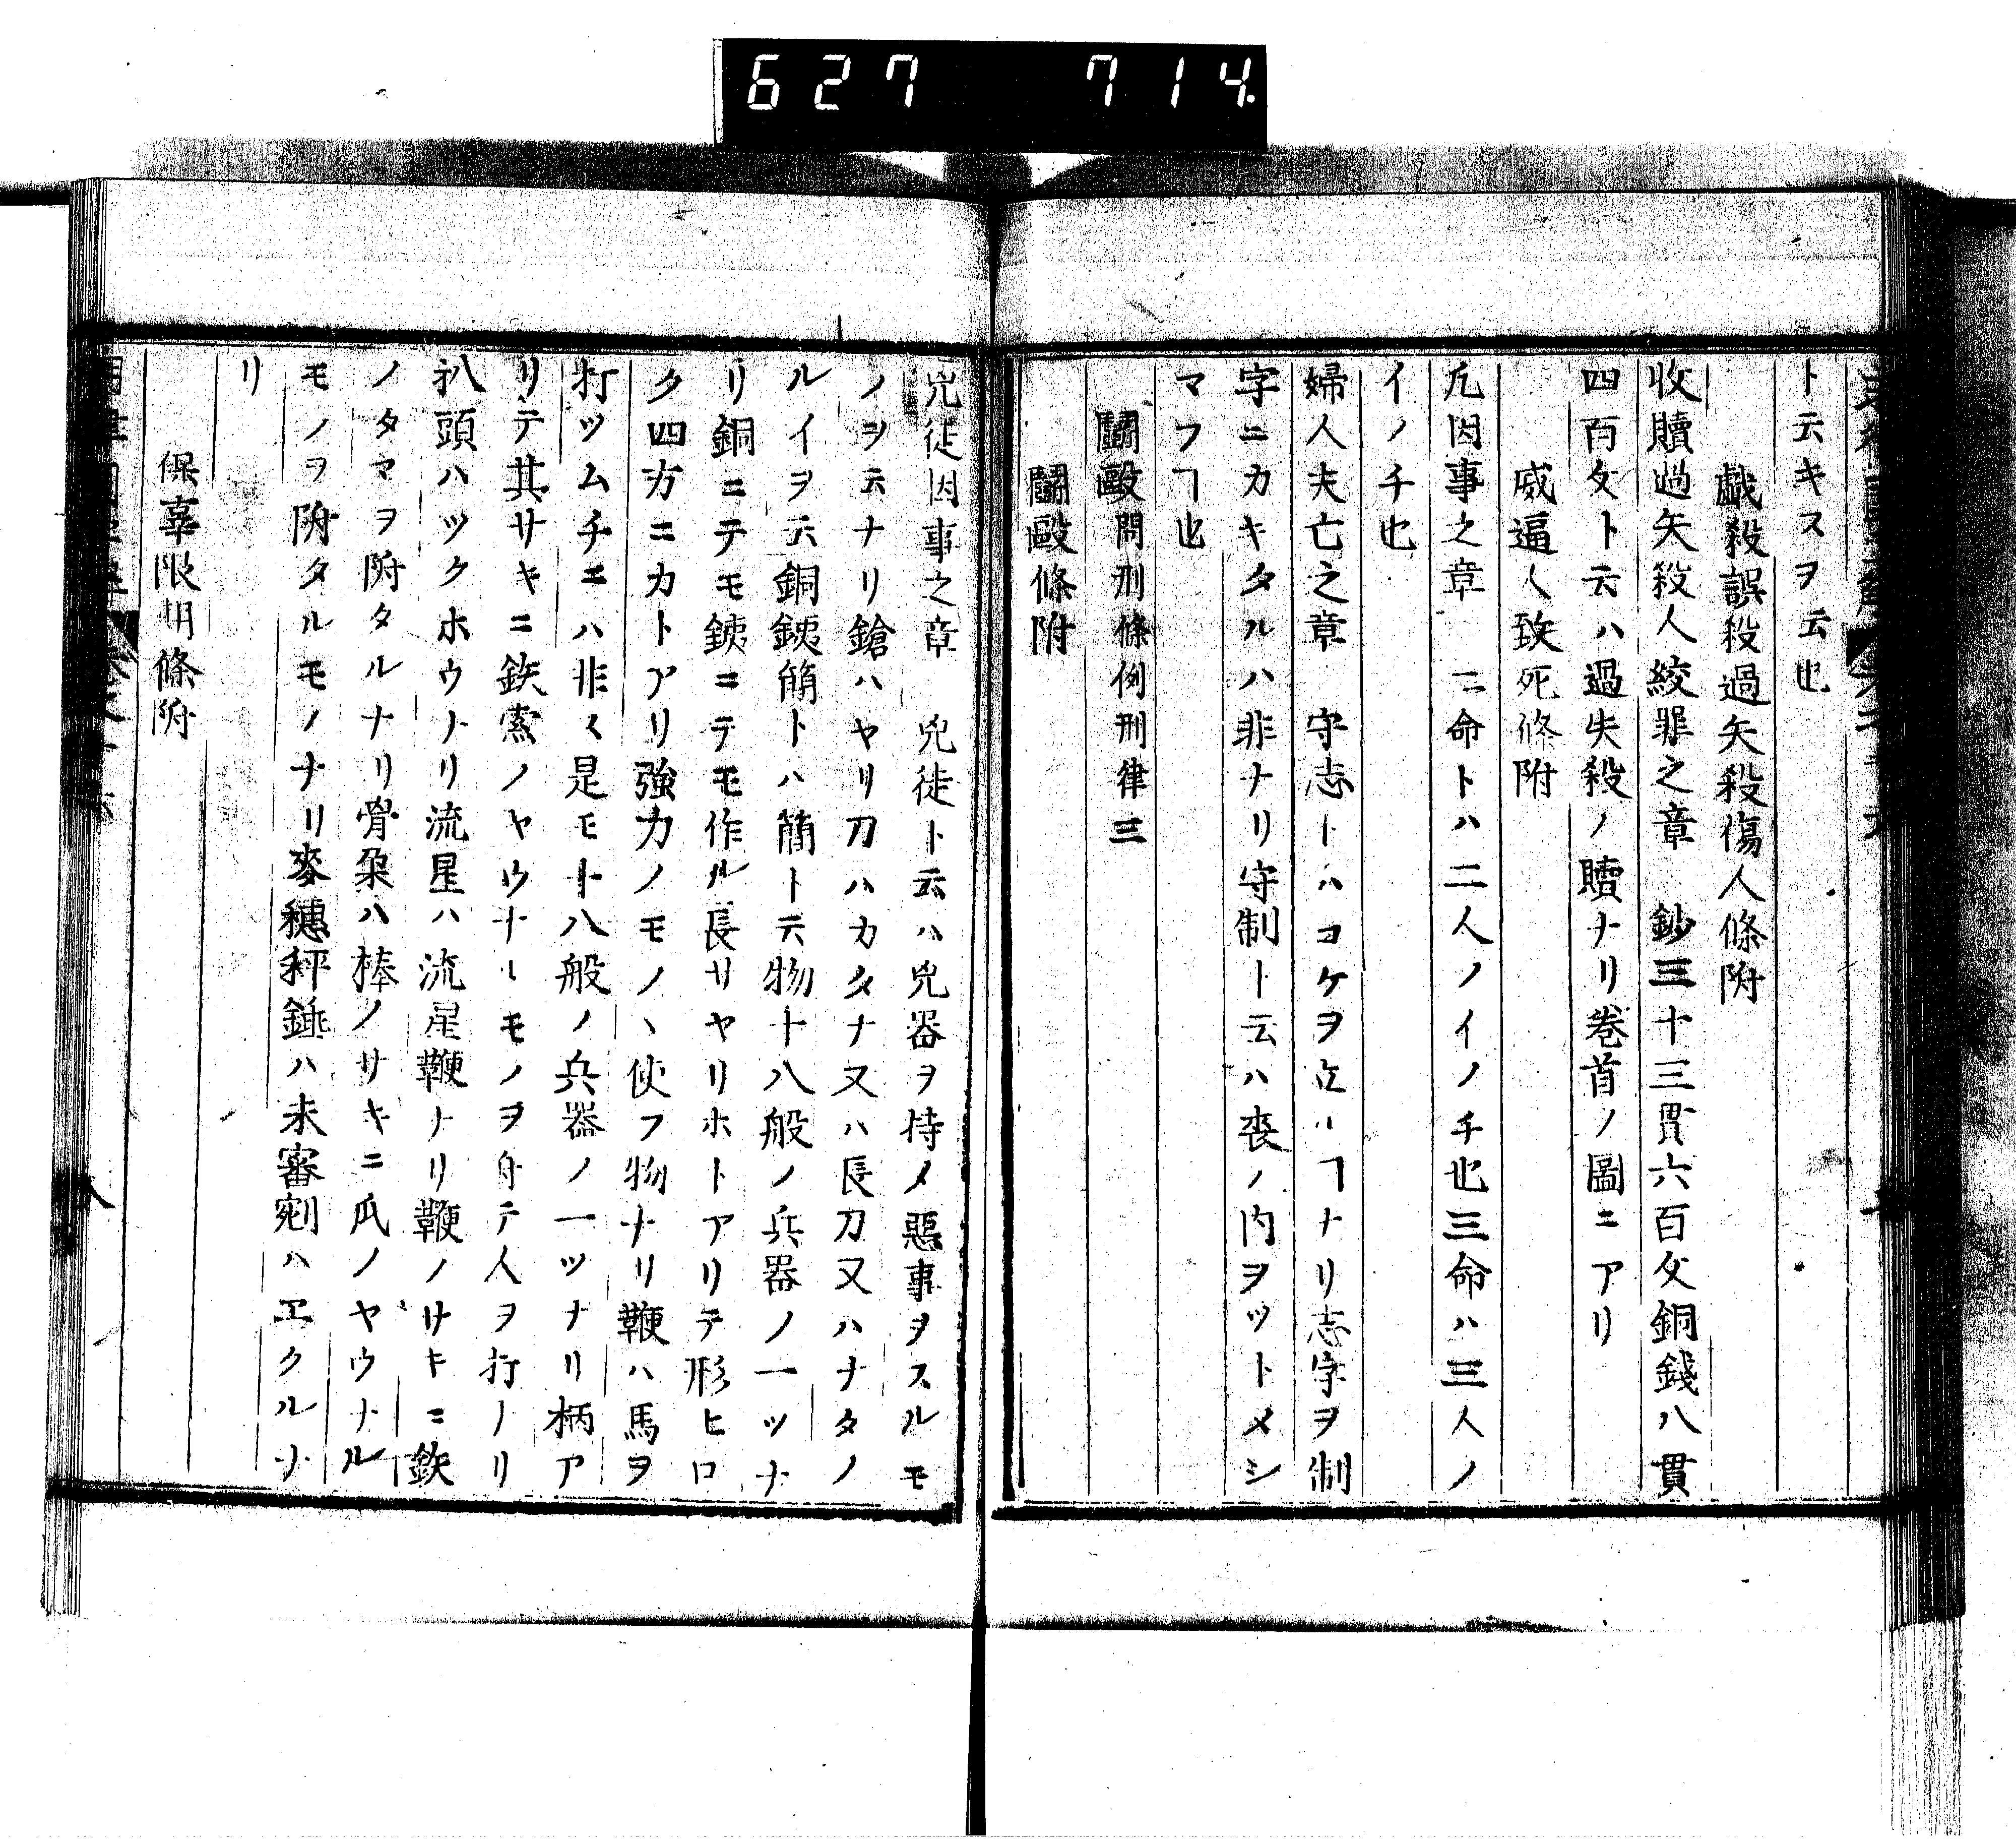 627 714
ト云キスヲ云也
戯殺誤殺過失殺傷人條附
收贖過失殺人絞罪之章 鈔三十三貫六百文銅錢八貫
四百文ト云ハ過失殺ノ贖ナリ卷首ノ圖ニアリ
威逼人致死條附
凡因事之章 二命トハ二人ノイノチ也三命ハ三人ノ
イノチ也
婦人夫亡之章 守志トハコケヲ立ルヿナリ志字ヲ制
字ニカキタルハ非ナリ守制ト云ハ喪ノ内ヲツトメシ
マフヿ也
鬪毆問刑條例刑律三
鬪毆條附
兇徒因事之章 兇徒ト云ハ兇器ヲ持メ惡事ヲスルモ
ノヲ云ナリ鎗ハヤリ刀ハカタナ又ハ長刀又ハナタノ
ルイヲ云銅鐵簡トハ簡ト云物十八般ノ兵器ノ一ツナ
リ銅ニテモ鐵ニテモ作ル長サヤリホトアリテ形ヒロ
ク四方ニカトアリ強力ノモノヽ使フ物ナリ鞭ハ馬ヲ
打ツムチニハ非ス是モ十八般ノ兵器ノ一ツナリ柄ア
リテ其サキニ鉄索ノヤウナルモノヲ付テ人ヲ打ノリ
扒頭ハツクホウナリ流星ハ流星鞭ナリ鞭ノサキニ鉄
ノタマヲ附タルナリ骨朶ハ棒ノサキニ爪ノヤウナル
モノヲ附タルモノナリ麥穗秤錘ハ未審剜ハヱクルナ
リ
保辜限期條附